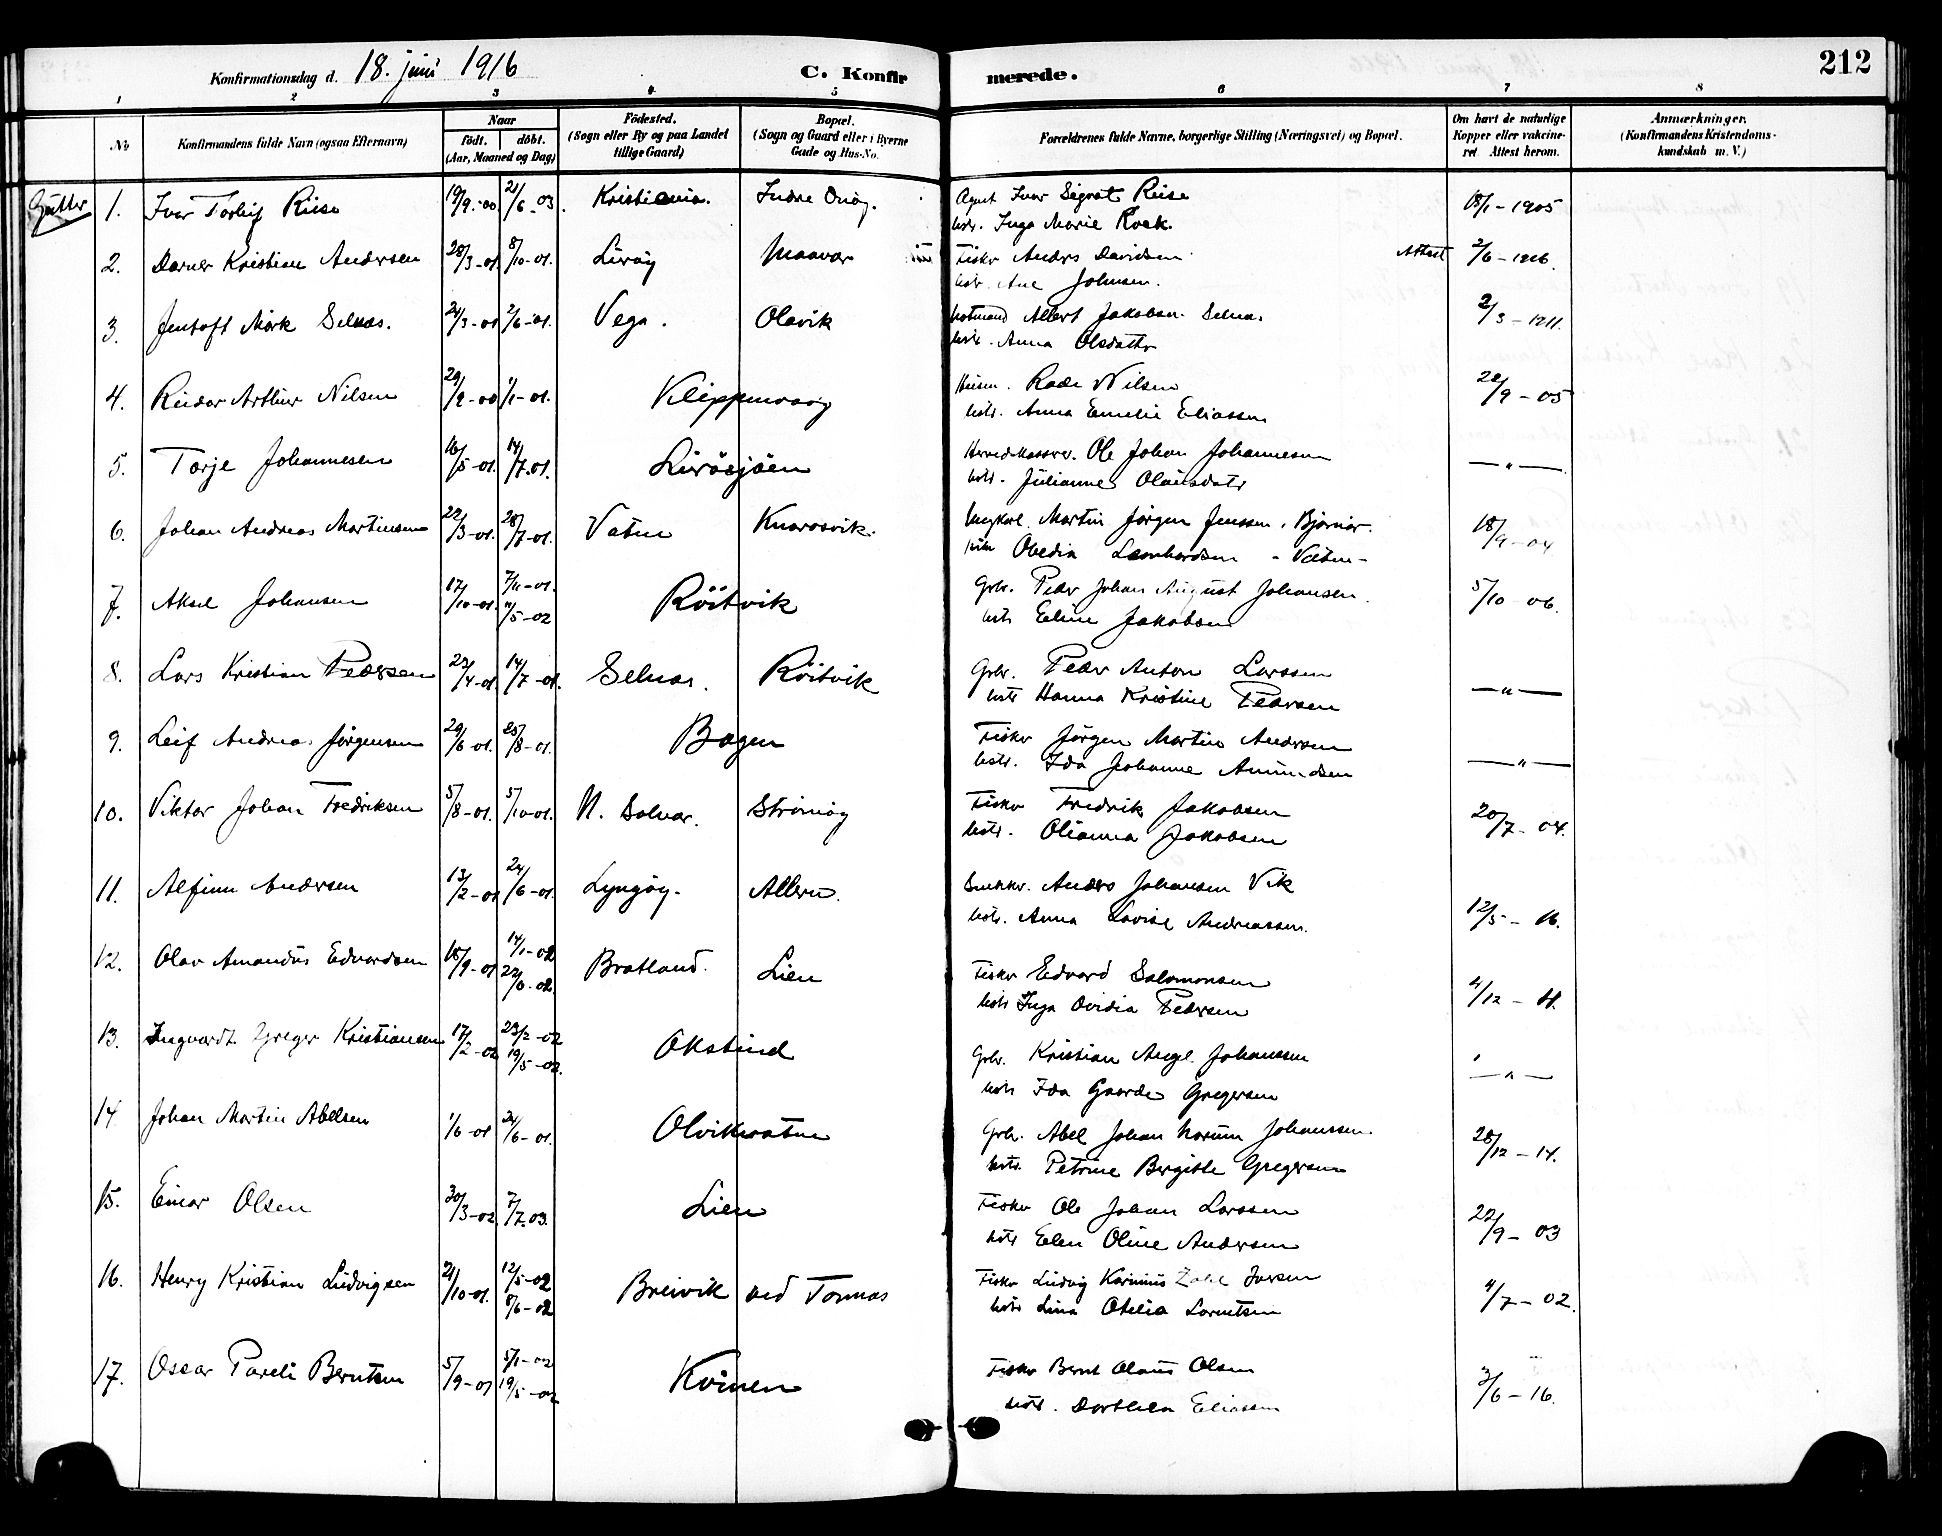 212
Konfirmationsdag d. 18. juni 1916 C. Konfirmerede.
1 2 3 4 5 6 7 8
No Konfirmandens fulde Navn (ogsaa Efternavn) Naar født. døbt. (Aar, Maaned og Dag) Fødested. (Sogn eller By og paa Landet tillige Gaard) Bopæl. (Sogn og Gaard eller i Byerne Gade og Hus-No. Forældrenes fulde Navne, borgerlige Stilling (Næringsvei) og Bopæl. Om havt de naturlige Kopper eller vakcineret Attest herom. Anmærkninger. (Konfirmandens Kristendomskundskab m. V.)
Gutter
1. Ivar Torleif Riise 19/9-00 21/6-03. Kristiania. Indre Agent Ivar Sigvat Riise 18/1-1905
hstr. Inga Marie Kvek.
2. Kristian Andersen 28/3-01. 8/10-01. Lurøy Maavær Fisker Anders Davidsen Attest 2/6-1916.
hstr. Ane Johnsen.
3. Jentoft Mørk Selnæs. 21/3-01 2/6-01. Vega. Olavik Notmand Albert Jakobsen Selnæs 2/3-1911.
hstr. Anna Olsdatter
4. Reidar Arthur Nilsen 29/9-00 1/1-01. Klippenvaag Nilsen 22/9-05
hstr. Anna Emelie Eliassen
5. Torje Johannesen 16/5-01. 14/7.01. Lurøsjøen Herredskasser. Ole Johan Johannesen —"—
hstr. Julianne Olausdatr
6. Johan Andreas Martinsen 22/3-01. 28/7-01. Vatne Kvarøsvik. Ungkarl. Martin Jørgen Jenssen, Bjørnør. 18/9-04
Obedia Leonhardsen - Vatne -
7. Aksel Johansen 17/10-01. 7/11-01. 11/5-02 Röitvik Grbr. Peder Johan August Johansen. 5/10-06.
hstr Eline Jakobsen
8. Lars Kristian Pedersen 23/4-01 14/7-01. Selnæs. Röitvik Grbr. Peder Anton Larssen —"—
hstr Hanna Kristine Pedersen
9. Leif Andreas Jørgensen 29/6-01. 25/8-01. Bogen Fisker Jørgen Martin Andersen —"—
hstr. Ida Johanne Amundsen
10. Viktor Johan Fredriksen 5/8-01. 5/10-01. N. Solvær. Strömöy Fisker Fredrik Jakobsen 20/7-04.
hstr. Olianna Jakobsen
11. Alfinn Andersen 13/2-01 24/6-01. Lyngöy. Alderen. Snekker. Anders Johansen Vik 12/5-16.
hstr. Anna Lovise Andreassen.
12. Olav Amandus Edvardsen 18/9-01 14/1-02 Bratland. Lien Fisker Edvard Salomonsen 4/12-11.
hstr Inga Ovidia Pedersen
13. Ingvardt Greger Kristiansen 17/2-02 23/2-02 19/5-02. Okstind Grbr. Kristian Angel Johanssen —"—
hstr Ida Gregersen
14 Johan Martin Abelsen 1/6-01 24/6-01. Olvikvatne Grbr. Abel Johan Norum Johanssen. 28/12-14.
hstr. Petrine Bergitte Gregersen
15. Einar Olsen 30/3-02. 7/7.03. Lien Fisker Ole Johan Larssen 22/9-03
hstr Elen Oline Andersen
16. Henry Kristian Ludvigsen 21/10-01. 12/5-02 8/6-02 Breivik ved Tonnes Fisker Ludvig Karinius Zahl Iversen 4/7-02.
hstr Lina Otelia Lorentsen
17. Oscar Pareli Berntsen 5/9-01 5/1-02 19/5-02 Kvinen Fisker Bernt Olaus Olsen 3/6-16.
hstr. Dorthea Eliassen